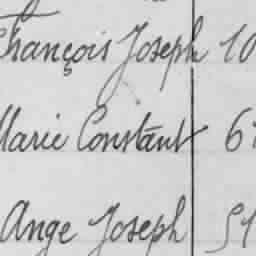 François Joseph 10
Marie Constant 6
Ange Joseph 51